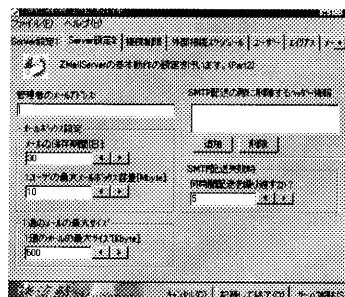 ファイル(F) ヘルプ(H)
Server設定1 Server設定2 接続制限 外部接続スケジュール ユーザー エイリアス
ZMailServerの基本動作の設定を行います。(Part2)
管理者のメールアドレス
SMTP配送の際に削除するヘッダー情報
追加 削除
メールボックス設定
メールの保存期間[日]
30
1ユーザの最大メールボックス容量[Mbyte]
10
SMTP配送失敗時
何時間配送を繰り返すか?
5
1通のメールの最大サイズ
1通のメールの最大サイズ[Kbyte]
500